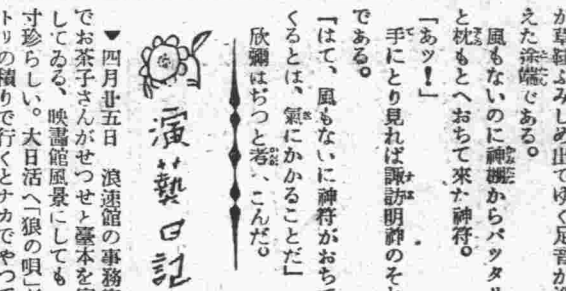 が草鞋ふみしめ出てゆく足音が
えた途端である。
風もないのに神棚からバッタリ
と枕もとへおちて來た神符。
「あッ！」
手にとり見れば諏訪明神のそ
である。
「はて、風もないに神符がおち
くるとは、氣にかかることだ」
欣彌はぢつと考へこんだ。
演藝日記
▼四月廿五日　浪速館の事務
でお茶子さんがせつせと臺本を
してゐる、映畫館風景にしても
寸珍らしい。大日活へ「狼の唄」
トリの積りで行くとナカでやつ